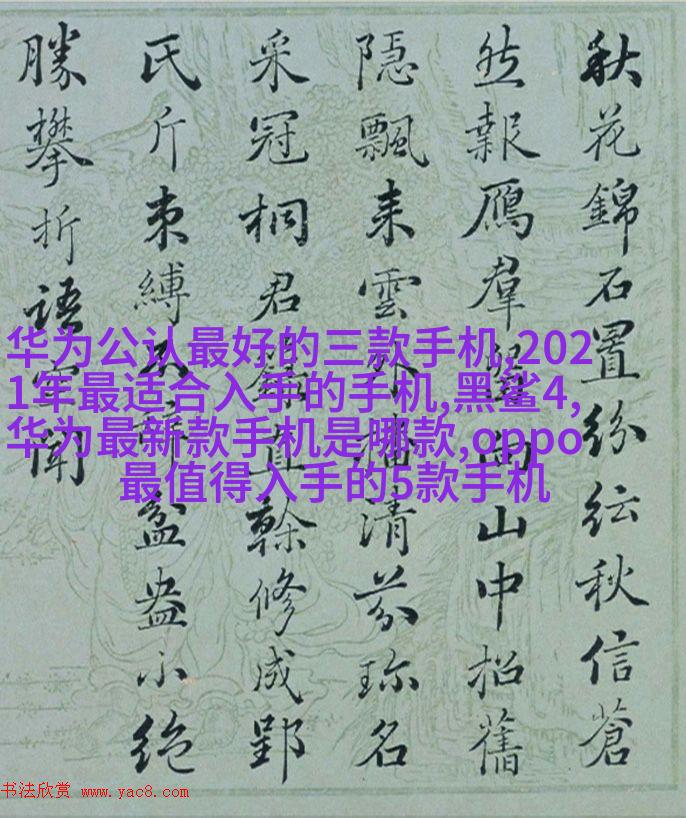 秋花錦石置紛紜秋信蒼
然報鴈羣山中招舊
隱飄来雲清芬珎名
采冠桐君直榦修成郢
氏斤束縛盆盎小絶
勝攀折語聞
华为公认最好的三款手机,202
1年最适合入手的手机,黑鲨4,
华为最新款手机是哪款,oppo
最值得入手的5款手机
书法欣赏 www.yac8.com